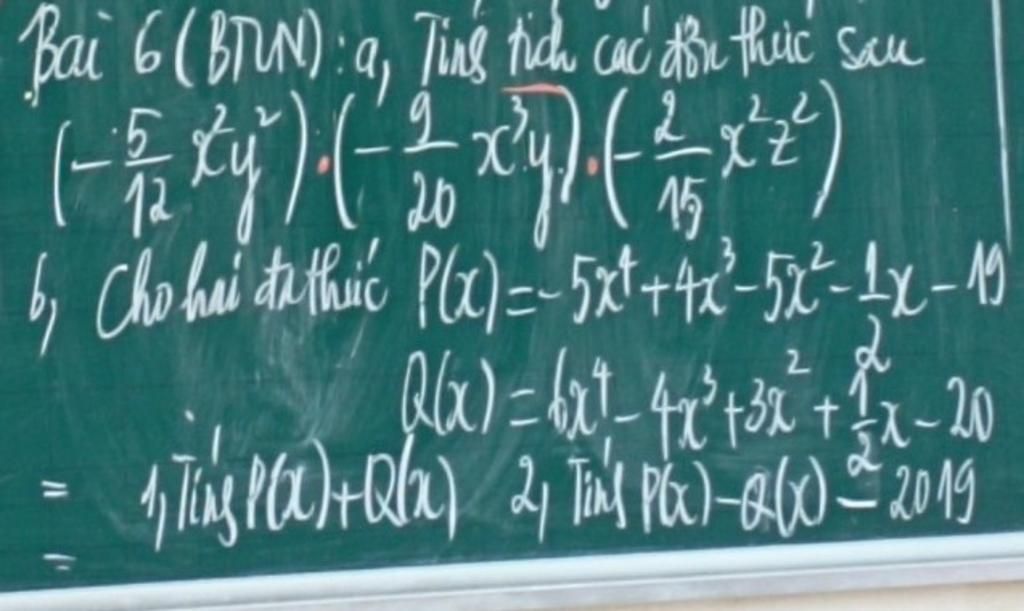 Bài 6 (BTVN): a, Tính tích các đơn thức sau
(-5/12 x²y²).(-9/20 x³y).(-2/15 x²z²)
b, Cho hai đa thức P(x) = -5x⁴ + 4x³ - 5x² - 1/2 x - 19
Q(x) = 6x⁴ - 4x³ + 3x² + 1/2 x - 20
= 1, Tính P(x) + Q(x) 2, Tính P(x) - Q(x) - 2019
=